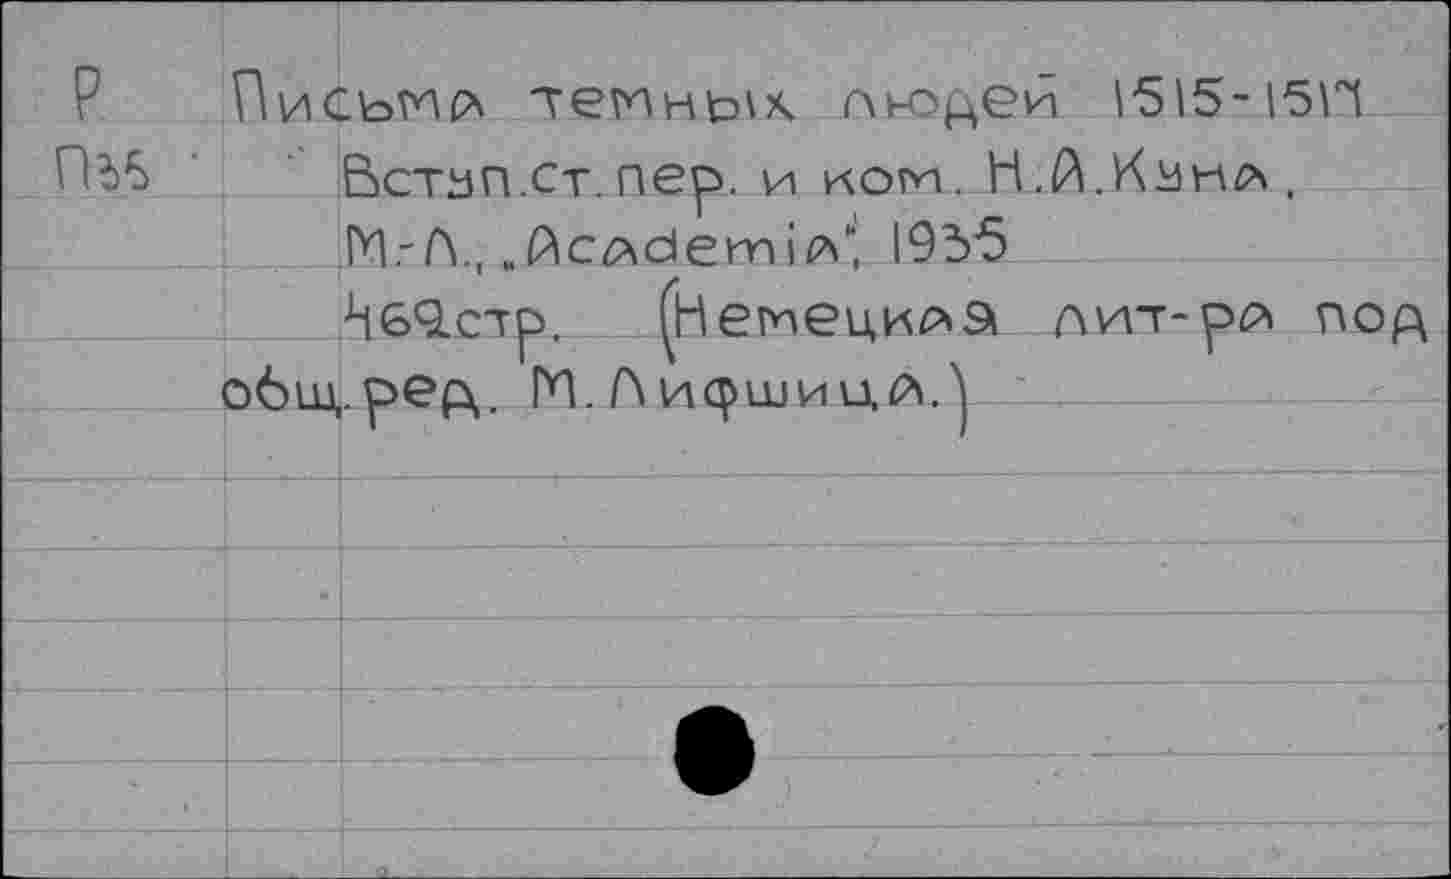 Р Письма темных людей 1515-1517
П35 Вступ.ст.пер. и ком. Н.А.Куна.
М.-Л., „Academia“, 1935
469.стр. (Немецкая лит-ра под
общ.ред. М.Лифшица.)